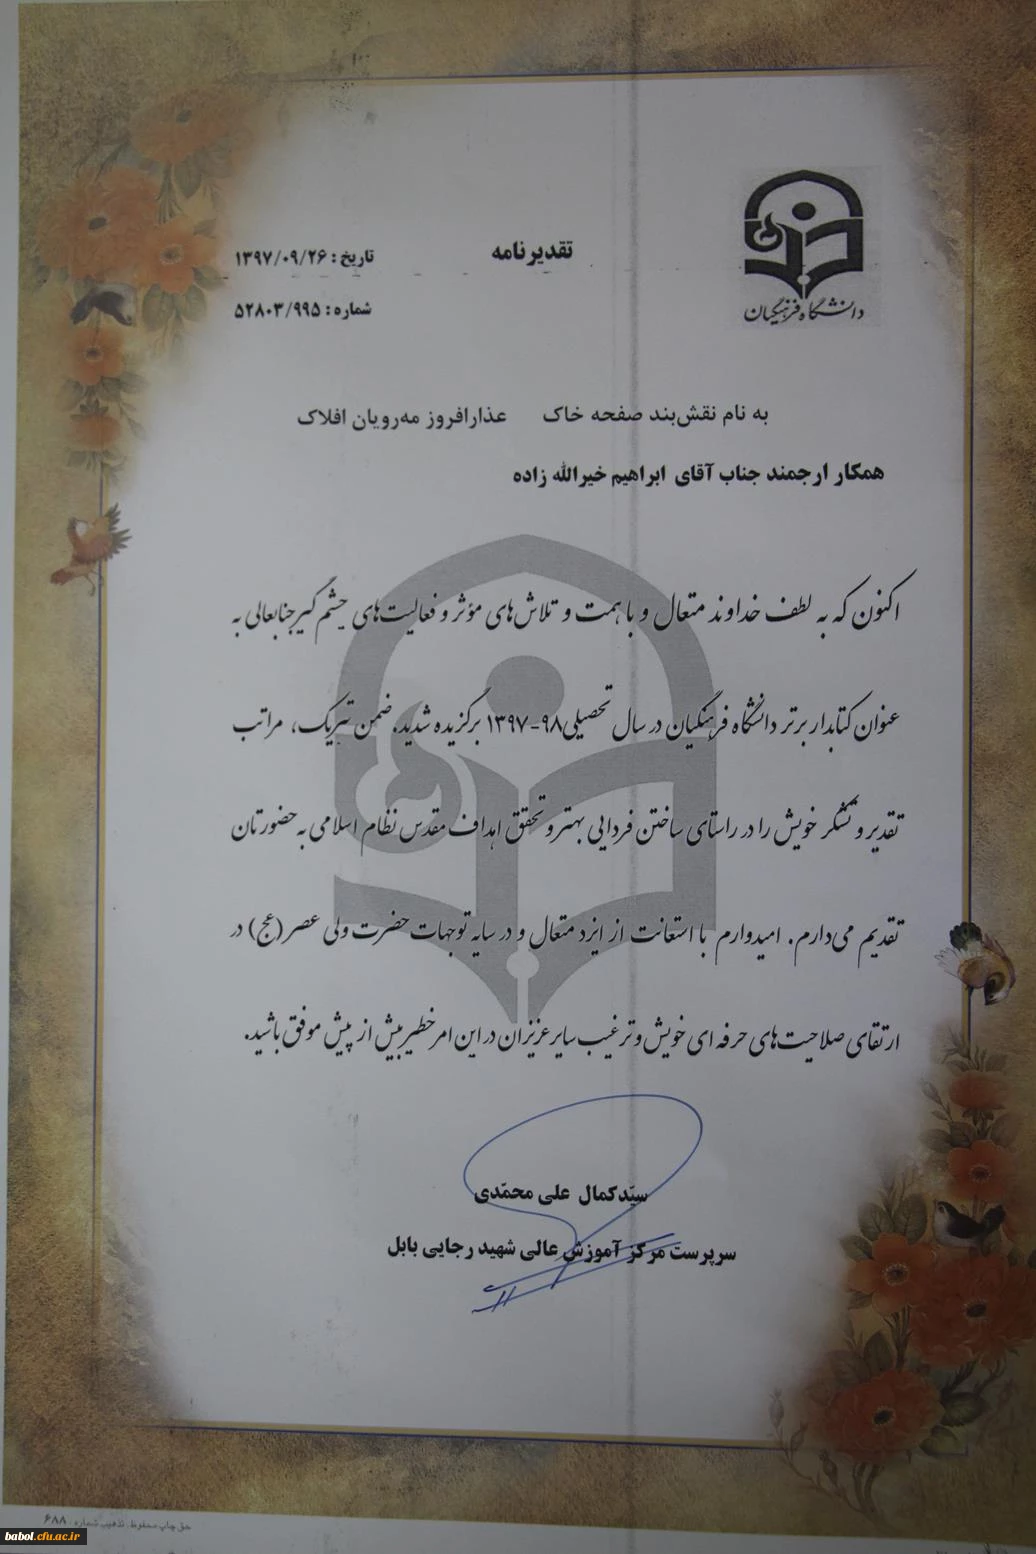 دانشگاه فرهنگیان
تقدیرنامه
تاریخ : ۱۳۹۷/۰۹/۲۶
شماره : ۵۲۸۰۳/۹۹۵
به نام نقش‌بند صفحه خاک عذارافروز مه‌رویان افلاک
همکار ارجمند جناب آقای ابراهیم خیرالله زاده
اکنون که به لطف خداوند متعال و با همت و تلاش‌های مؤثر و فعالیت‌های چشم گیر جنابعالی به
عنوان کتابدار برتر دانشگاه فرهنگیان در سال تحصیلی ۹۸-۱۳۹۷ برگزیده شدید، ضمن تبریک، مراتب
تقدیر و تشکر خویش را در راستای ساختن فردایی بهتر و تحقق اهداف مقدس نظام اسلامی به حضورتان
تقدیم می‌دارم. امیدوارم با استعانت از ایزد متعال و در سایه توجهات حضرت ولی عصر(عج) در
ارتقای صلاحیت‌های حرفه ای خویش و ترغیب سایر عزیزان در این امر خطیر بیش از پیش موفق باشید.
سیّدکمال علی محمّدی
سرپرست مرکز آموزش عالی شهید رجایی بابل
حق چاپ محفوظ. تذهیب شماره : ۶۸۸
babol.cfu.ac.ir